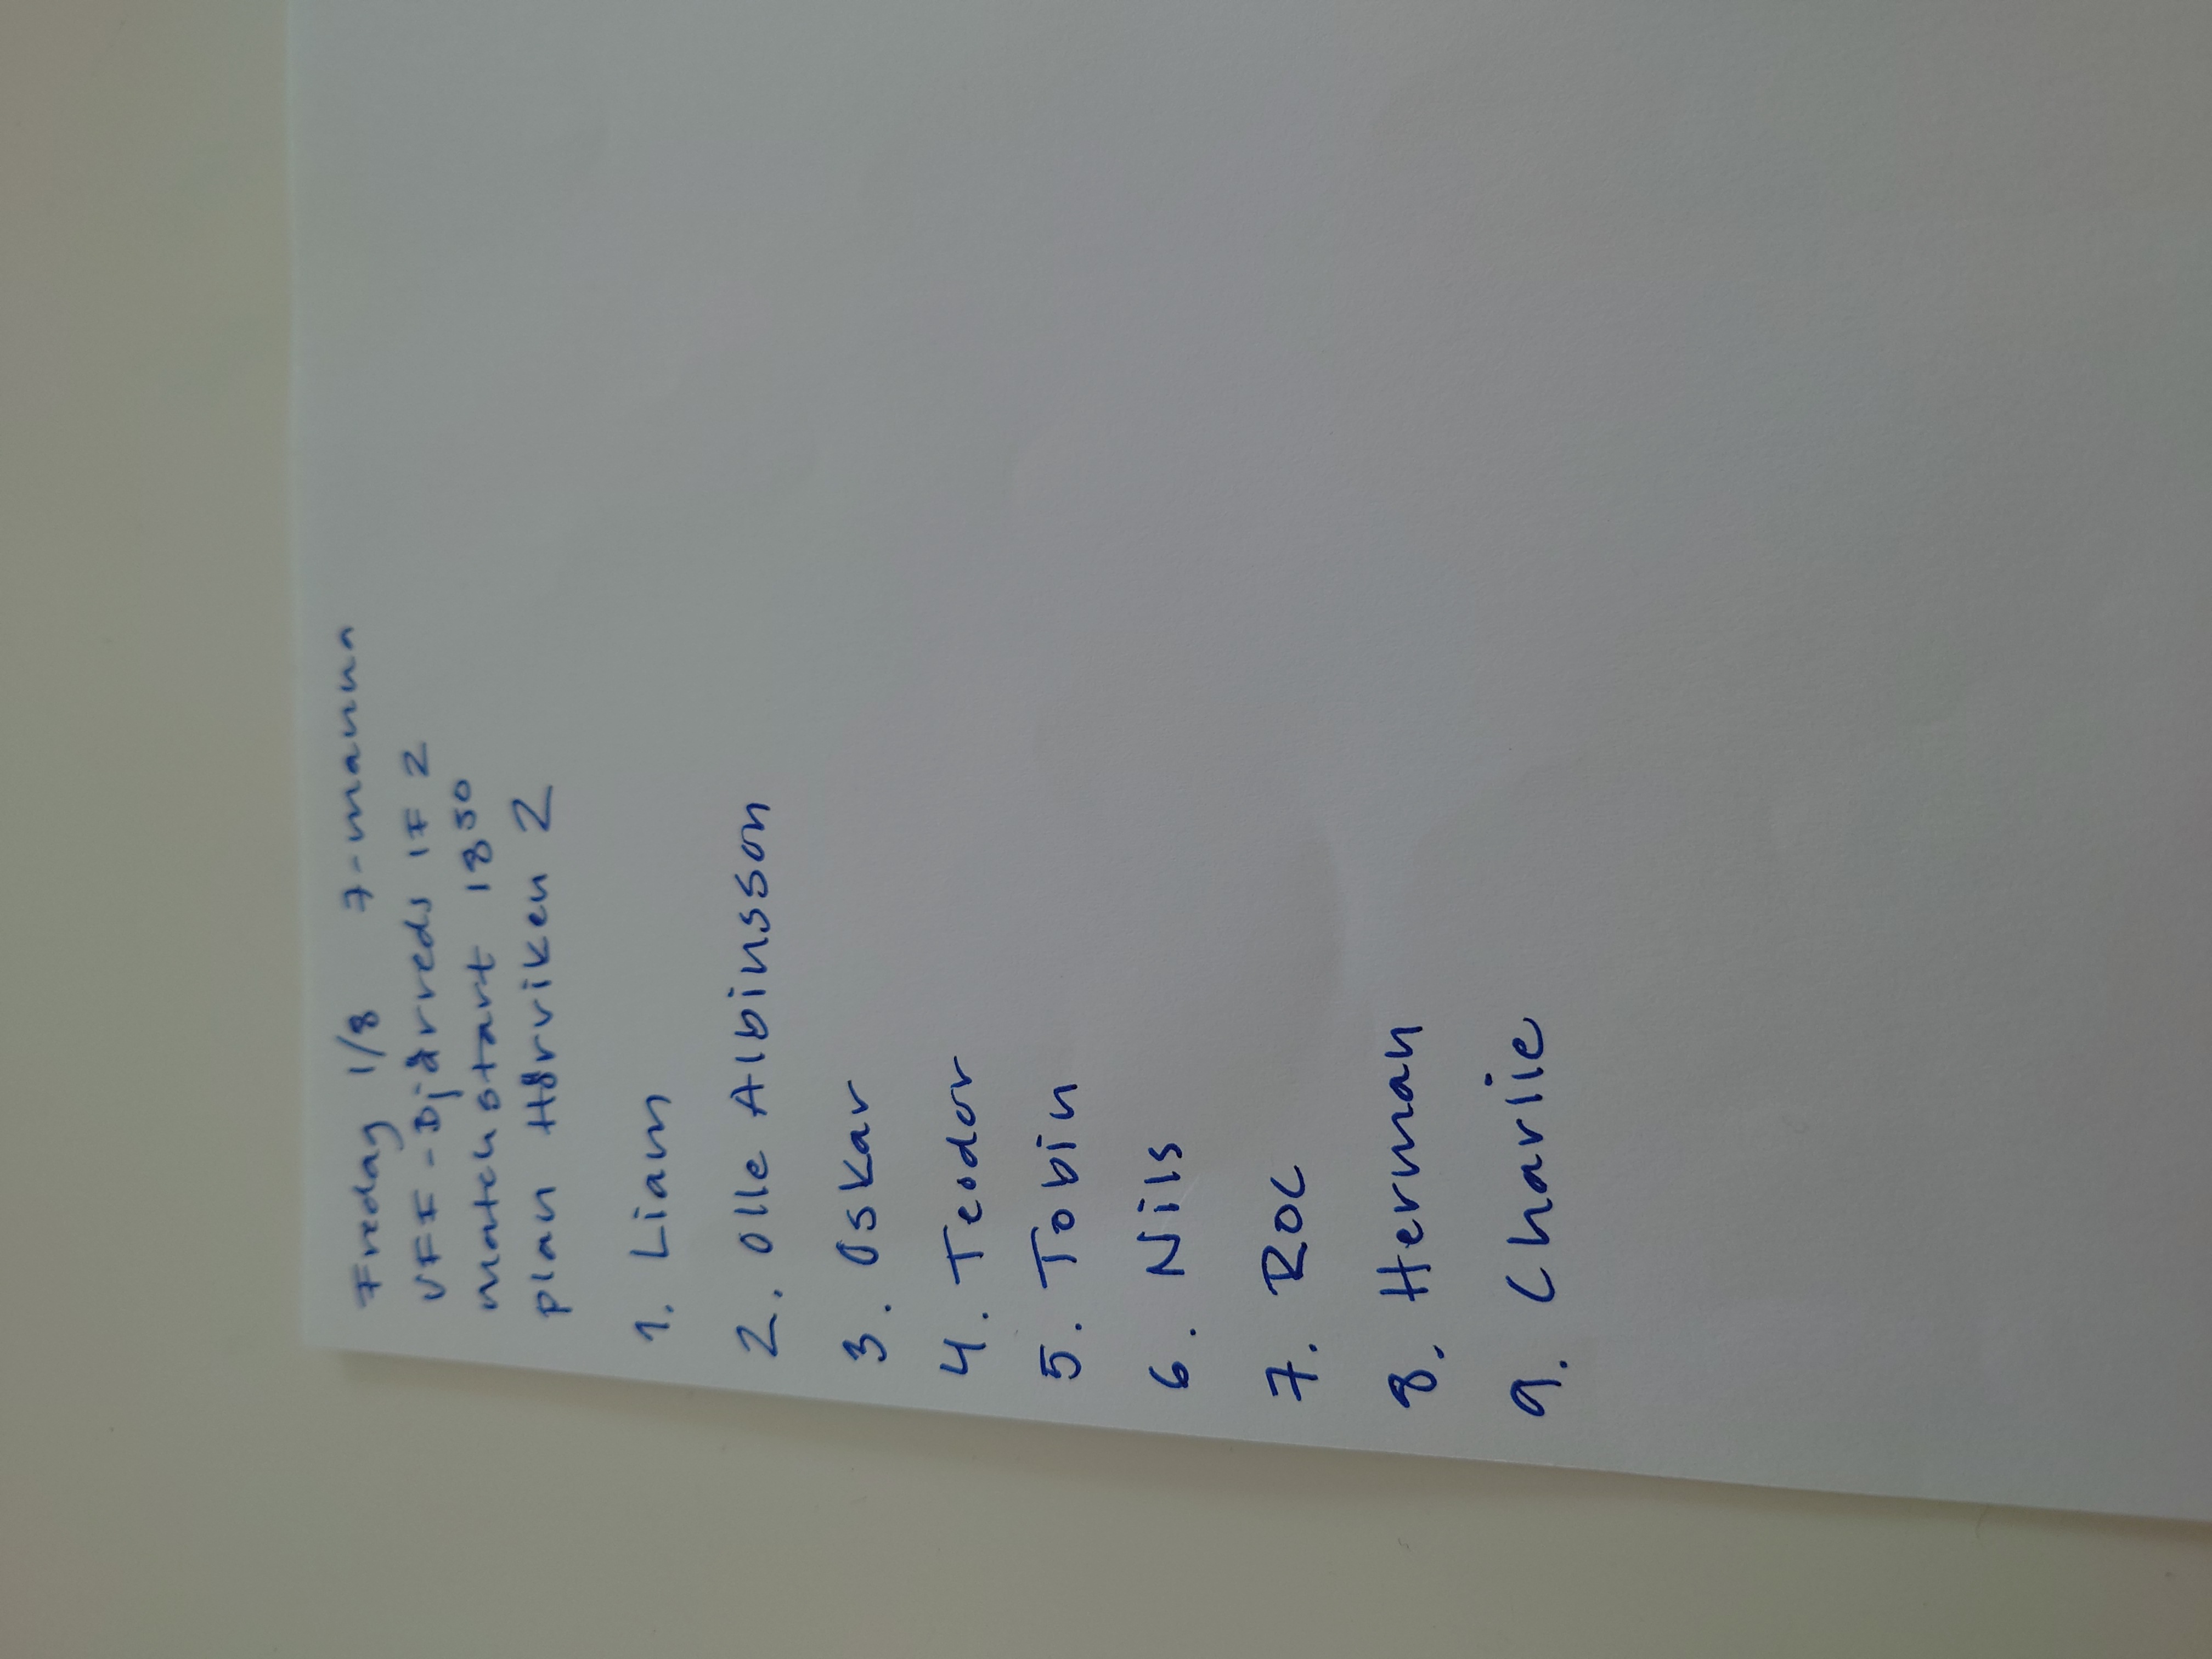 Fredag 1/8 7-manna
VFF - Bjärreds IF 2
matchstart 1850
plan Hårviken 2
1. Liam
2. Olle Albinsson
3. Oskar
4. Teodor
5. Tobin
6. Nils
7. Roc
8. Herman
9. Charlie